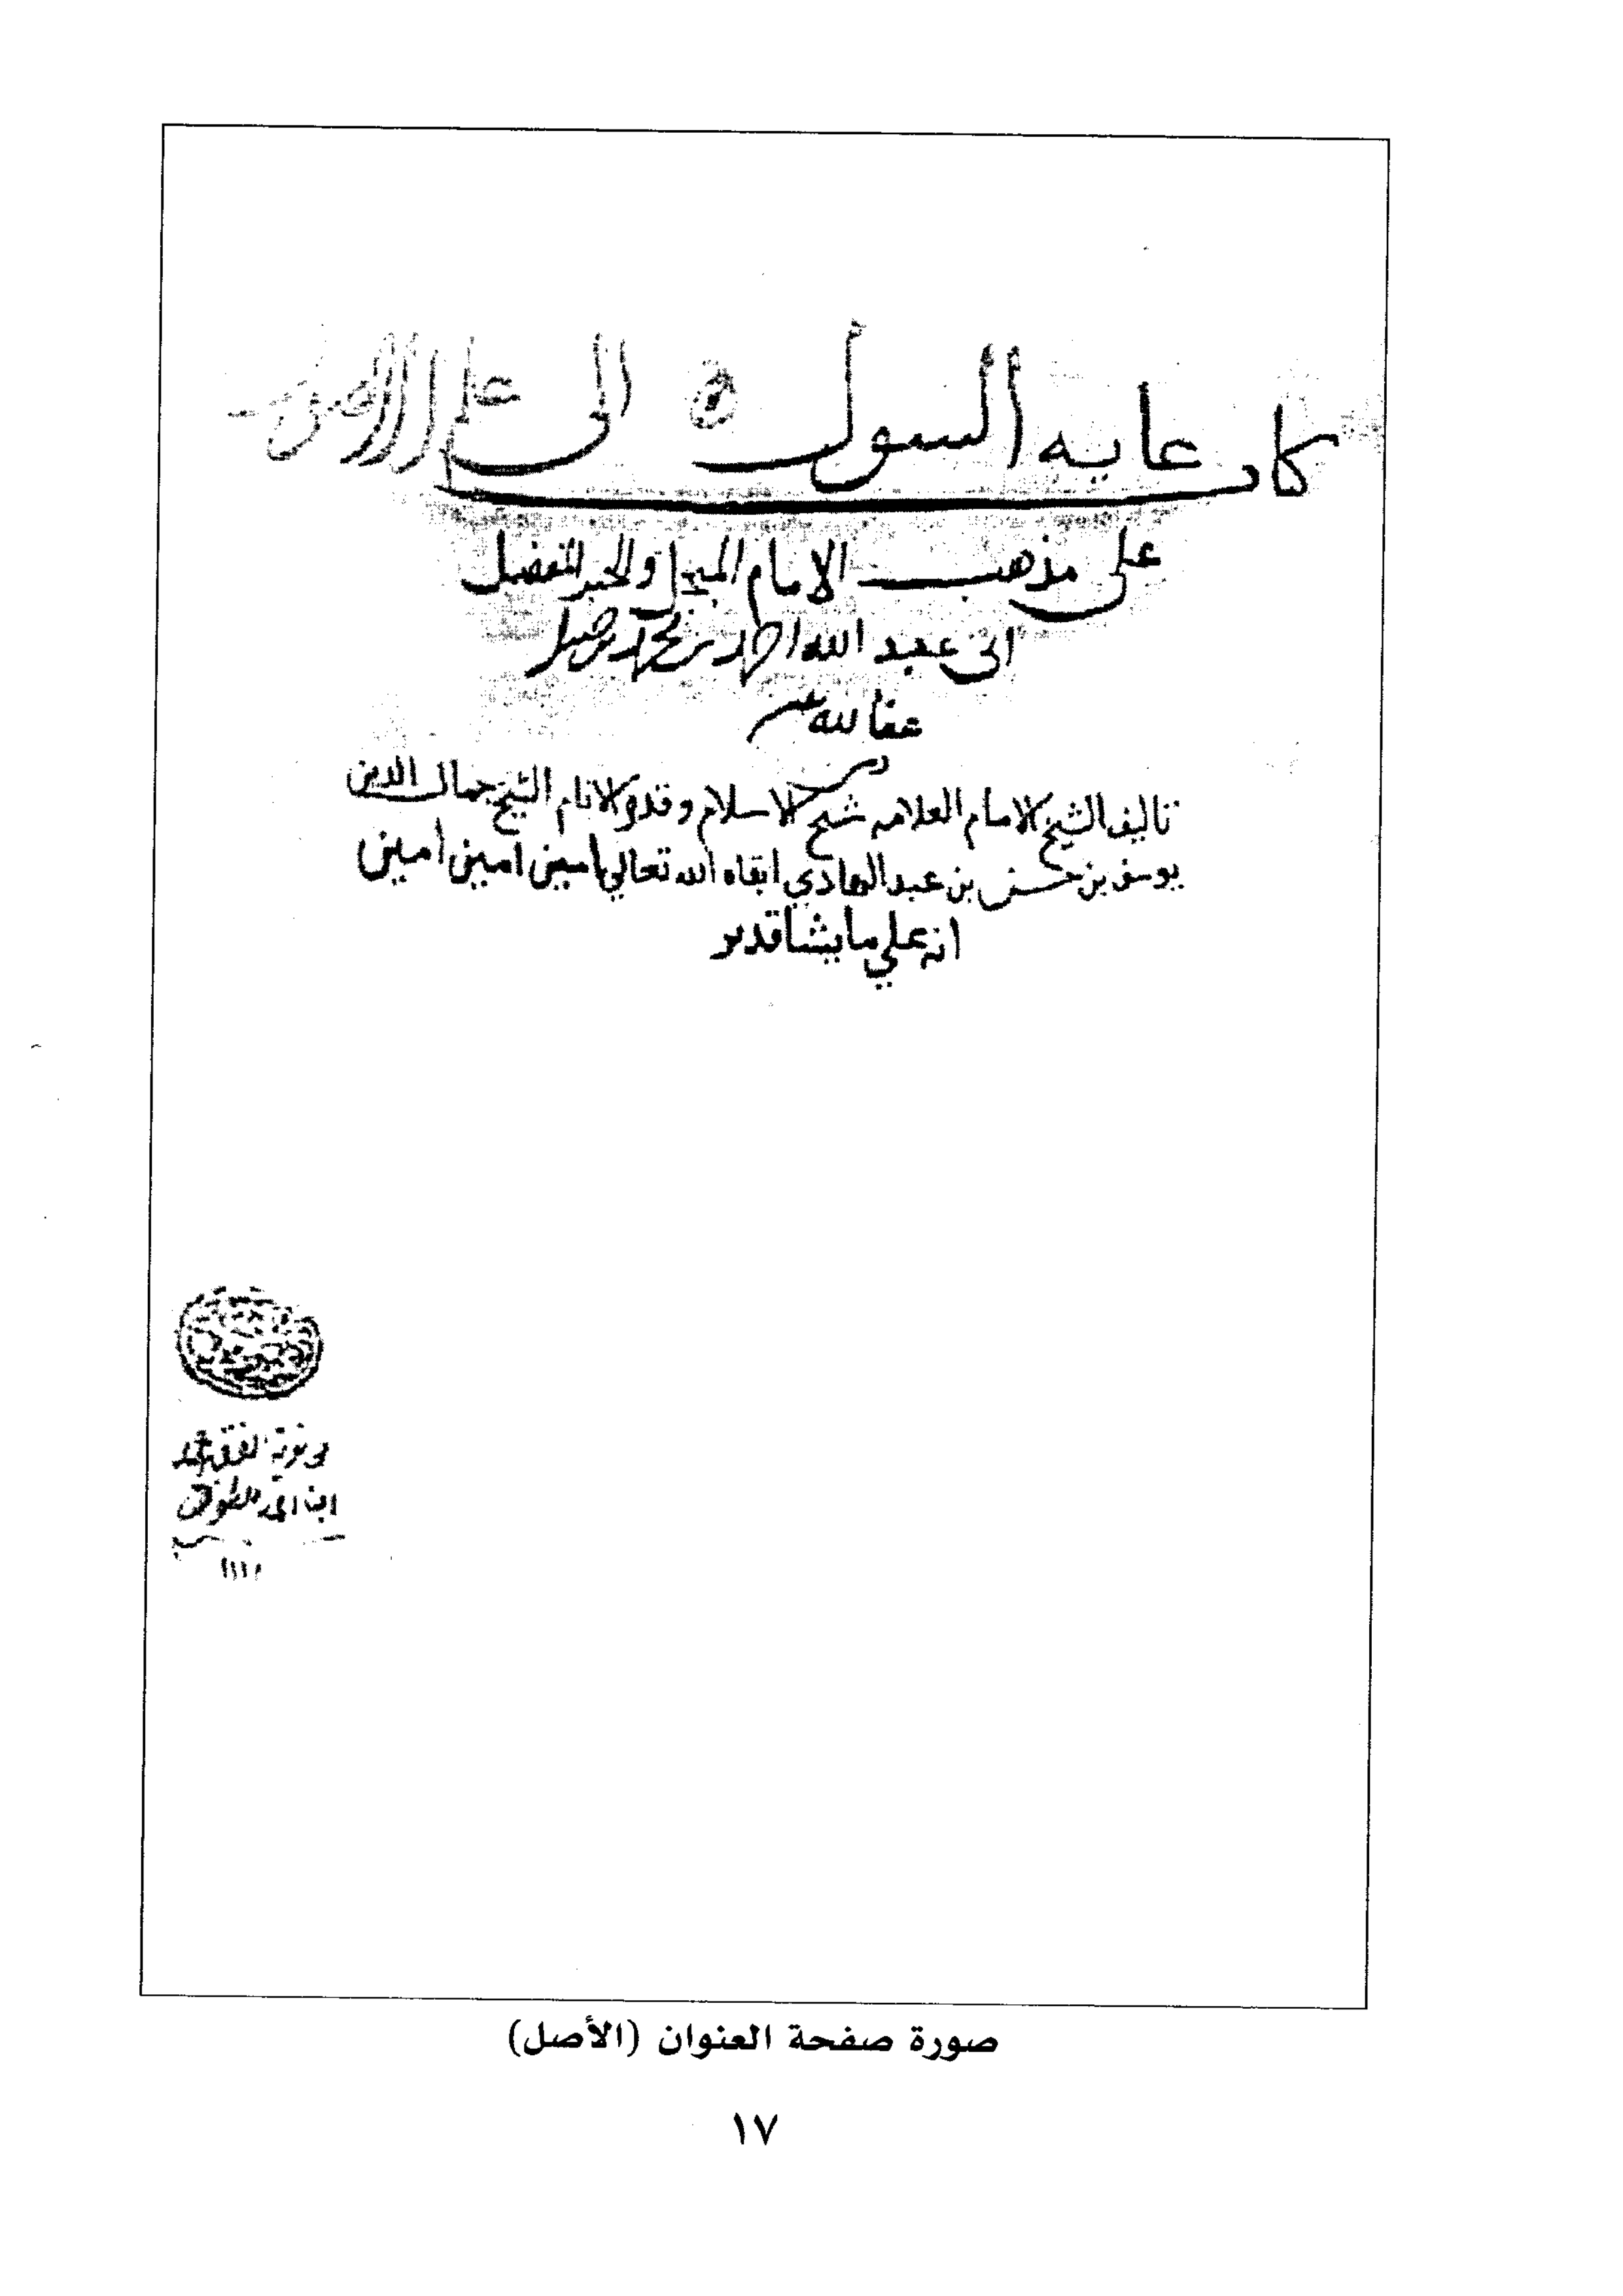 كتاب غايه السول الى علم الاصول
على مذهب الامام المبجل والحبر المفضل
ابي عبد الله احمد بن محمد بن حنبل
عفا الله عنه
تاليف الشيخ الامام العلامه شيخ الاسلام وقدوة الانام الشيخ جمال الدين
يوسف بن حسن بن عبد الهادي ابقاه الله تعالي امين امين امين
انه علي ما يشا قدير
صورة صفحة العنوان (الأصل)
١٧